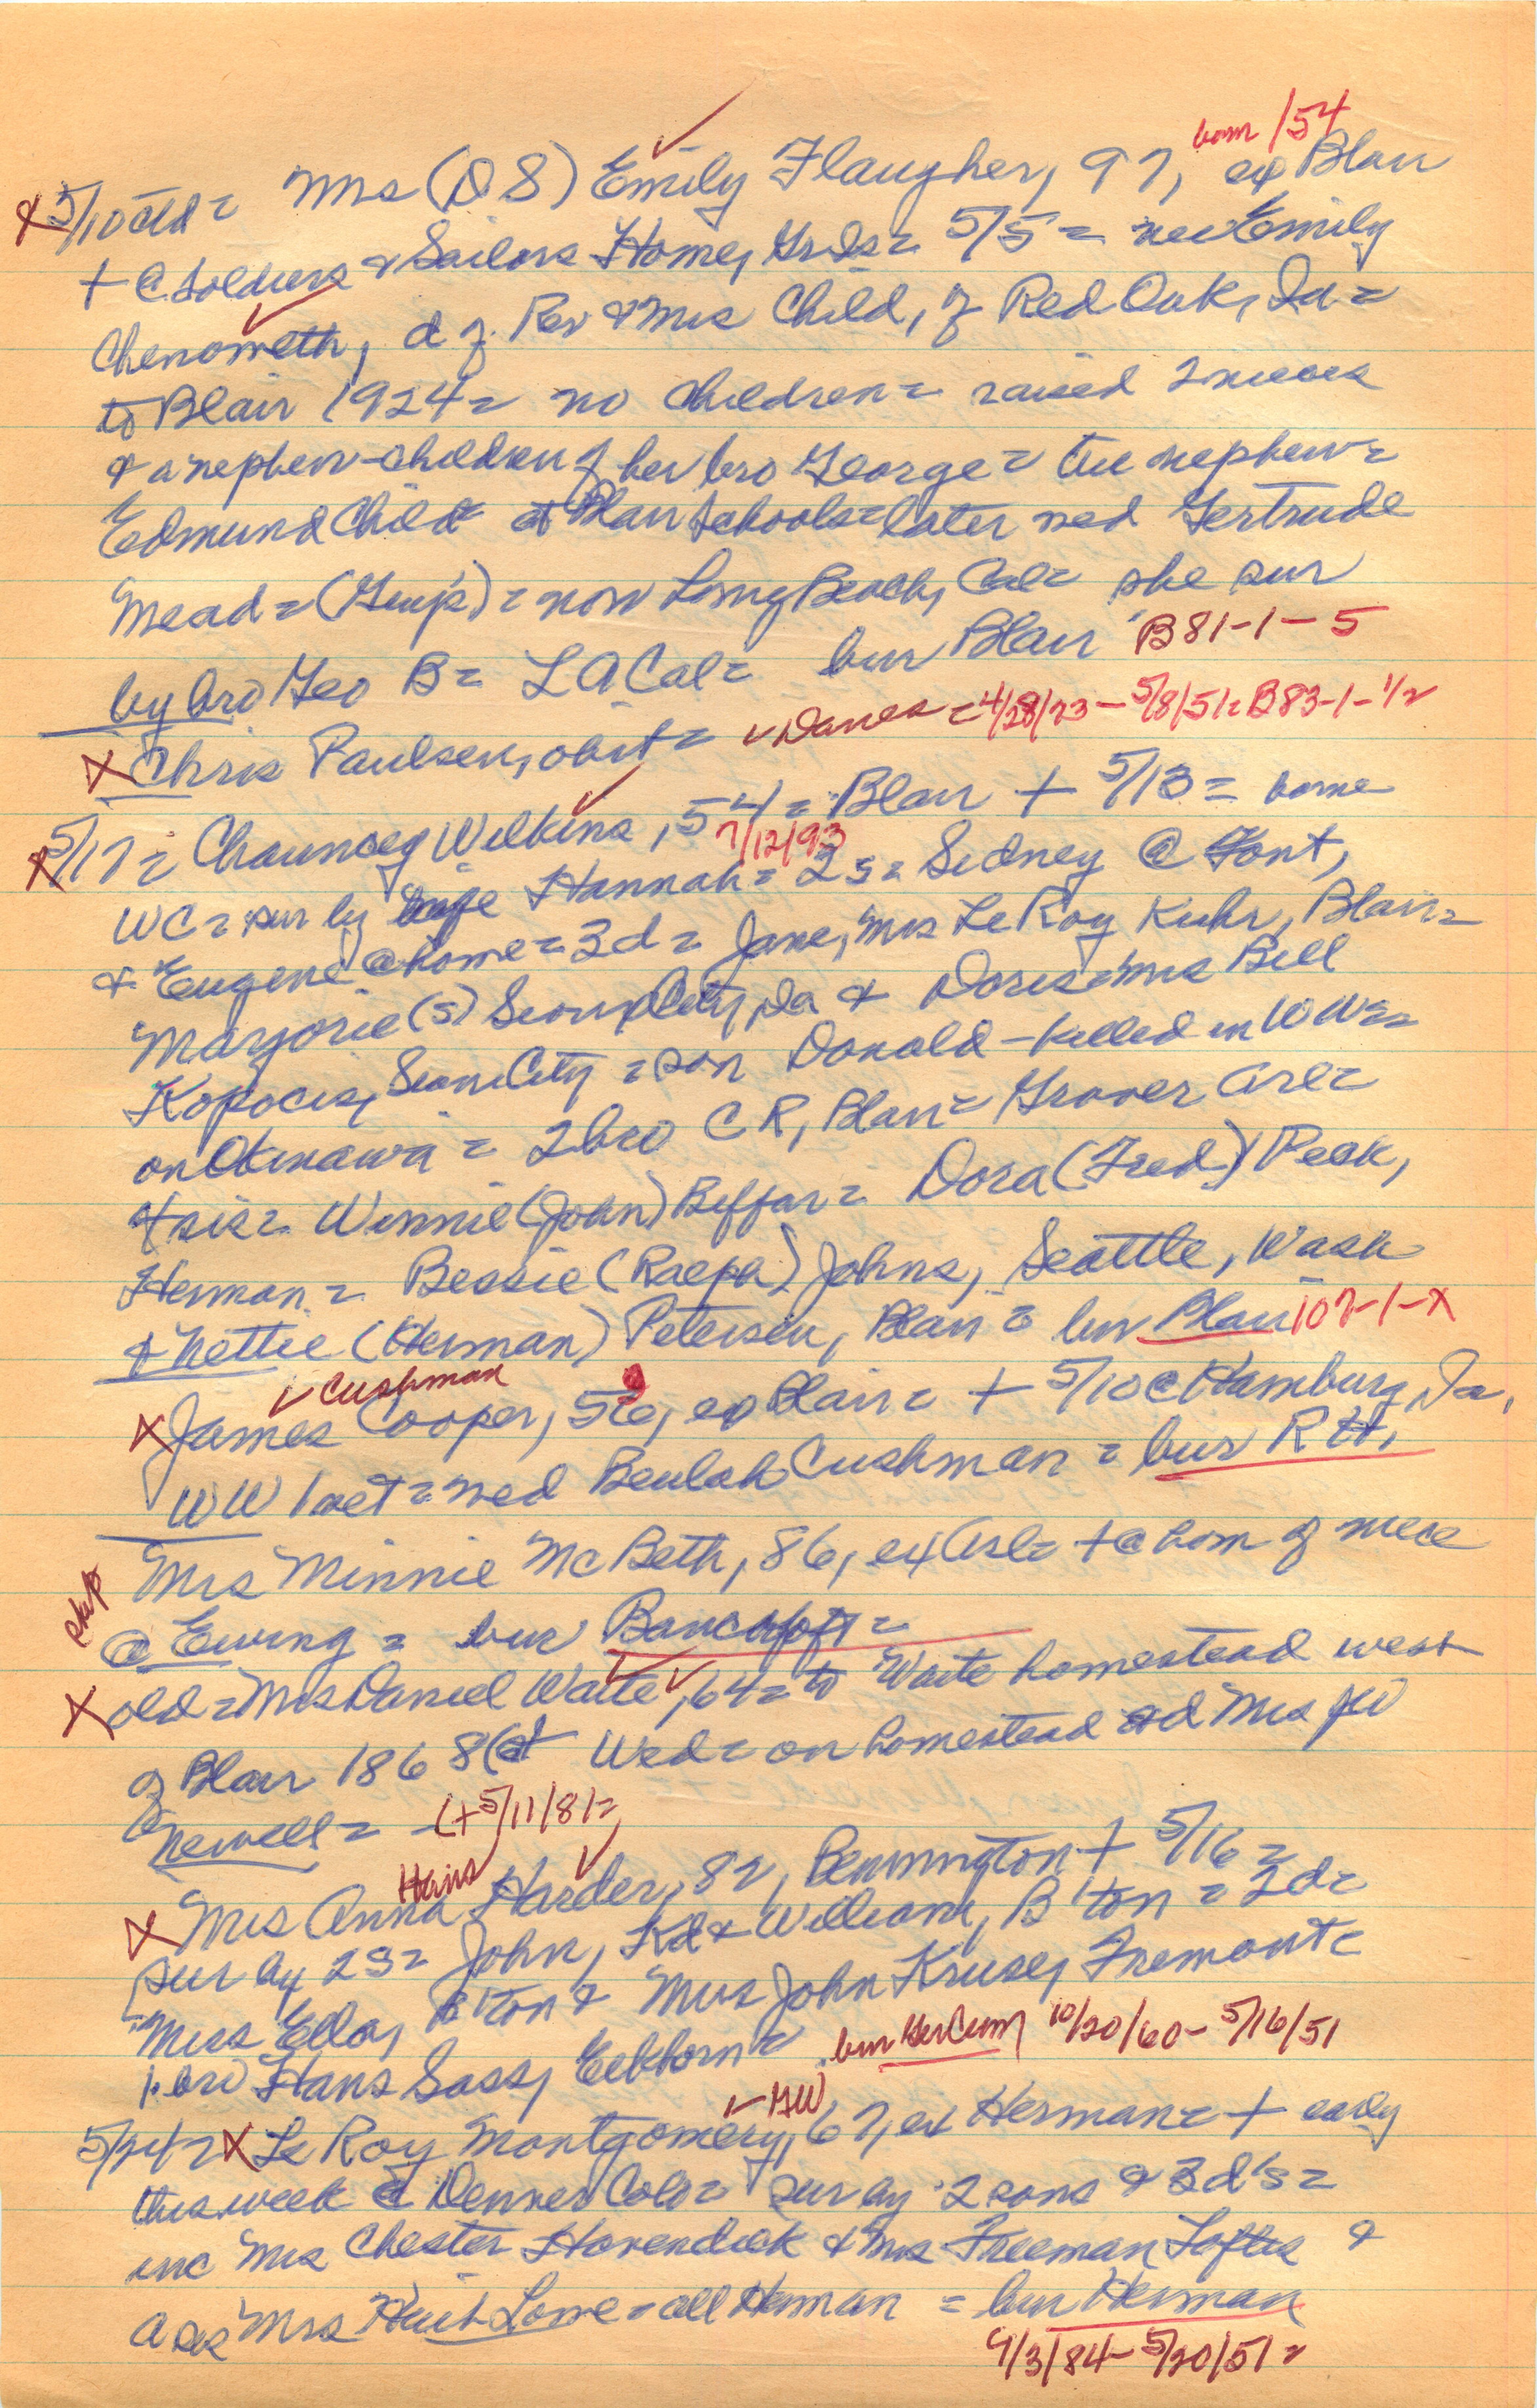 born /54
X 5/10 old = Mrs (D S) Emily Flaugher, 97, ex Blair
+ @ Soldiers & Sailors Home, Gr Is = 5/5 = nee Emily
Chenoweth, d of Rev & Mrs Child, of Red Oak, Ia =
to Blair 1924 = no children = raised 2 nieces
& a nephew - children of her bro George = the nephew =
Edmund Child at Blair schools = later wed Gertrude
Mead = (Guy's) = now Long Beach, Cal = she sur
by bro Geo B = LA Cal = bur Blair B81-1-5
X Chris Paulsen, obit = ✓ Danes = 4/28/73 - 5/8/51 = B83-1-1/2
X 5/17 = Chauncey Wilkins, 54 = Blair + 5/13 = born
7/12/93
WC = sur by wife Hannah = 2s = Sidney @ Font,
& Eugene @ home = 3d = Jane, Mrs LeRoy Kuhr, Blair =
Marjorie (s) Sioux City, Ia & Doris = Mrs Bill
Kopocis, Sioux City = son Donald - killed in WW2 =
on Okinawa = 2 bro C R, Blair = Grover Arl =
4 sis = Winnie (John) Beffar = Dora (Fred) Peck,
Herman = Bessie (Ralph) Johns, Seattle, Wash
& Nettie (Herman) Petersen, Blair = bur Blair 107-1-X
✓ Cushman
X James Cooper, 56, ex Blair = + 5/10 @ Hamburg, Ia,
WW 1 vet = wed Beulah Cushman = bur R H,
skip Mrs Minnie McBeth, 86, ex Arl = + @ hom of niece
@ Ewing = bur Bancroft =
X old = Mrs Daniel Waite, 64 = to Waite homestead west
of Blair 1868 (et Wed = on homestead od Mrs JW
Newell = (+ 5/11/81 =
Hans
X Mrs Anna Harder, 82, Bennington + 5/16 =
sur by 2S = John, Kd & William, B'ton = 2d =
Miss Ella, B'ton & Mrs John Kruse, Fremont =
1 bro Hans Sass, Elkhorn = bur Ger Cem 10/20/60 - 5/16/51
✓ GW
5/24 = X LeRoy Montgomery, 67, ex Herman = + early
this week @ Denver Colo = sur by 2 sons & 3 d's =
inc Mrs Chester Hovendick & Mrs Freeman Loftis &
a sis Mrs Lowe = all Herman = bur Herman
9/3/84 - 5/20/51 =